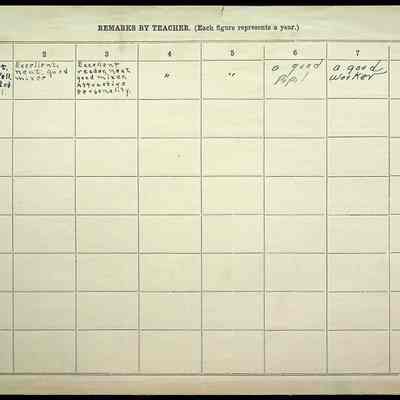 REMARKS BY TEACHER. (Each figure represents a year.)
2 3 4 5 6 7
Excellent,
neat, good
mixer
Excellent
reader, neat
good mixer
Attractive
personality.
"
"
a good
a good
worker